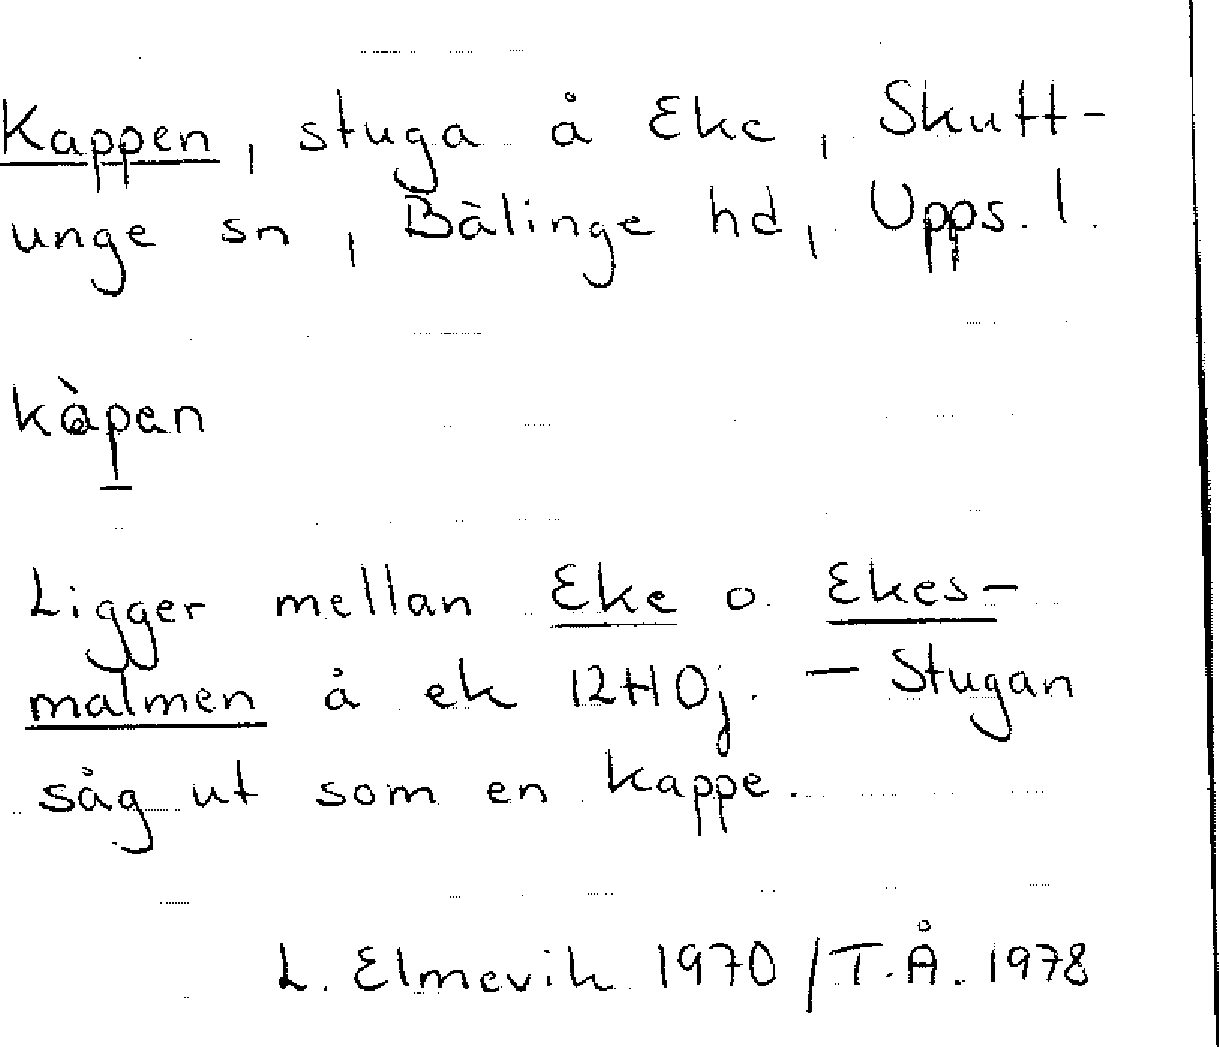 Kappen, stuga å Eke, Skutt-
unge sn, Bälinge hd, Upps. l.
kàpen
Ligger mellan Eke o. Ekes-
malmen å ek 12H0j. – Stugan
såg ut som en kappe.
L. Elmevik 1970 / T.Å. 1978